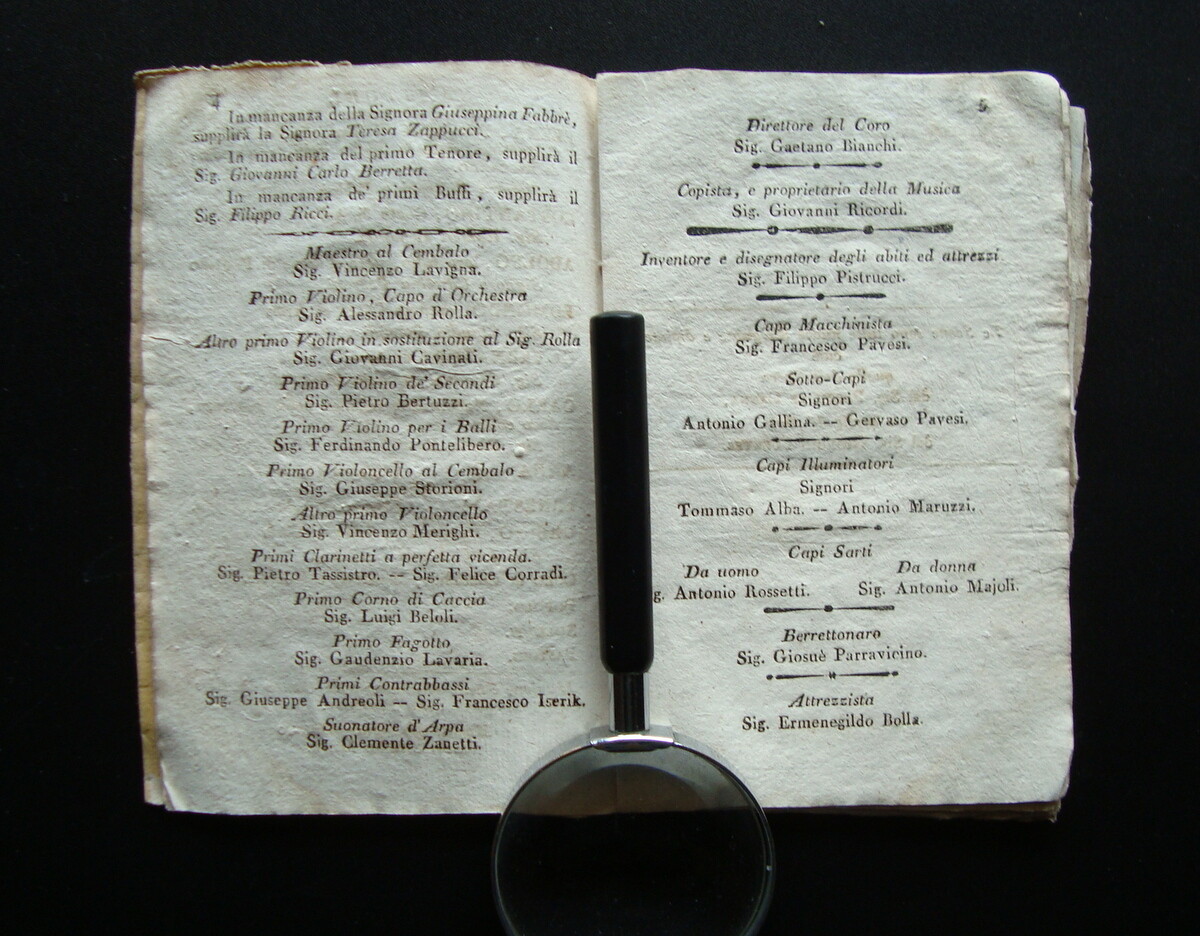 4
In mancanza della Signora Giuseppina Fabbrè,
supplirà la Signora Teresa Zappucci.
In mancanza del primo Tenore, supplirà il
Sig. Giovanni Carlo Berretta.
In mancanza de' primi Buffi, supplirà il
Sig. Filippo Ricci.
Maestro al Cembalo
Sig. Vincenzo Lavigna.
Primo Violino, Capo d'Orchestra
Sig. Alessandro Rolla.
Altro primo Violino in sostituzione al Sig. Rolla
Sig. Giovanni Cavinati.
Primo Violino de' Secondi
Sig. Pietro Bertuzzi.
Primo Violino per i Balli
Sig. Ferdinando Pontelibero.
Primo Violoncello al Cembalo
Sig. Giuseppe Storioni.
Altro primo Violoncello
Sig. Vincenzo Merighi.
Primi Clarinetti a perfetta vicenda.
Sig. Pietro Tassistro. -- Sig. Felice Corradi.
Primo Corno di Caccia
Sig. Luigi Beloli.
Primo Fagotto
Sig. Gaudenzio Lavaria.
Primi Contrabbassi
Sig. Giuseppe Andreoli -- Sig. Francesco Iserik.
Suonatore d'Arpa
Sig. Clemente Zanetti.
5
Direttore del Coro
Sig. Gaetano Bianchi.
Copista, e proprietario della Musica
Sig. Giovanni Ricordi.
Inventore e disegnatore degli abiti ed attrezzi
Sig. Filippo Pistrucci.
Capo Macchinista
Sig. Francesco Pavesi.
Sotto-Capi
Signori
Antonio Gallina. -- Gervaso Pavesi.
Capi Illuminatori
Signori
Tommaso Alba. -- Antonio Maruzzi.
Capi Sarti
Da uomo Da donna
g. Antonio Rossetti. Sig. Antonio Majoli.
Berrettonaro
Sig. Giosuè Parravicino.
Attrezzista
Sig. Ermenegildo Bolla.